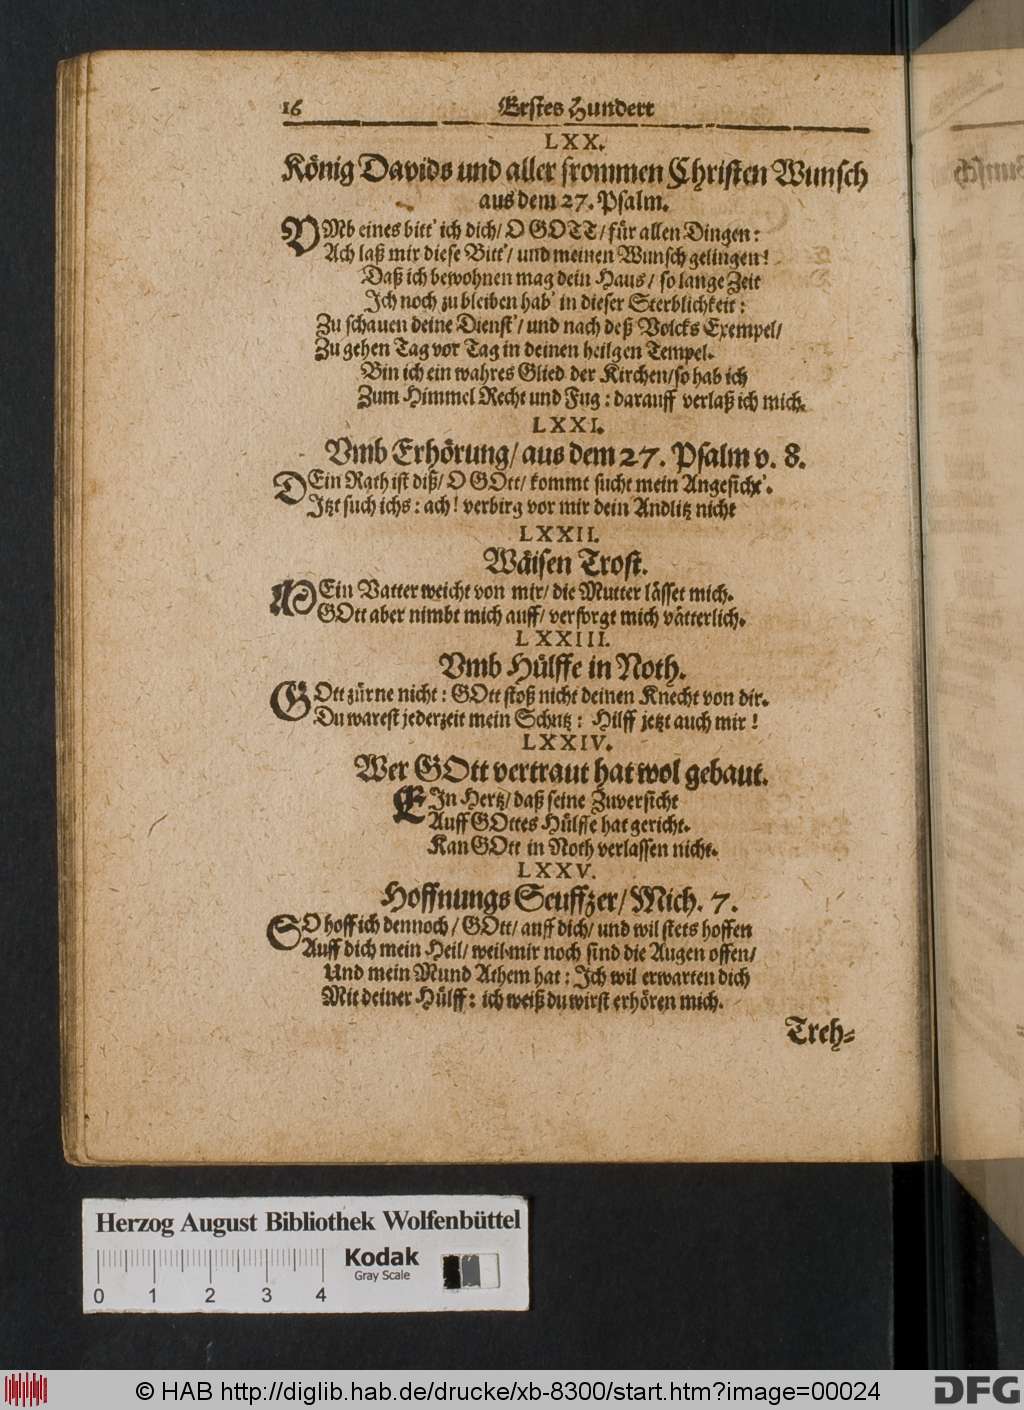 16 Erstes Hundert
LXX.
König Davids und aller frommen Christen Wunsch
aus dem 27. Psalm.
VMb eines bitt' ich dich/ O GOTT/ für allen Dingen:
Ach laß mir diese Bitt'/ und meinen Wunsch gelingen!
Daß ich bewohnen mag dein Haus/ so lange Zeit
Ich noch zu bleiben hab' in dieser Sterblichkeit:
Zu schauen deine Dienst'/ und nach deß Volcks Exempel/
Zu gehen Tag vor Tag in deinen heilgen Tempel.
Bin ich ein wahres Glied der Kirchen/ so hab ich
Zum Himmel Recht und Fug: darauff verlaß ich mich.
LXXI.
Vmb Erhörung/ aus dem 27. Psalm v. 8.
DEin Rath ist diß/ O GOtt/ kommt sucht mein Angesicht'.
Jtzt such ichs: ach! verbirg vor mir dein Andlitz nicht
LXXII.
Wäisen Trost.
MEin Vatter weicht von mir/ die Mutter lässet mich.
GOtt aber nimbt mich auff/ versorgt mich vätterlich.
LXXIII.
Vmb Hülffe in Noth.
GOtt zürne nicht: GOtt stoß nicht deinen Knecht von dir.
Du warest jederzeit mein Schutz: Hilff jetzt auch mir!
LXXIV.
Wer GOtt vertraut hat wol gebaut.
EIn Hertz/ daß seine Zuversicht
Auff GOttes Hülffe hat gericht.
Kan GOtt in Noth verlassen nicht.
LXXV.
Hoffnungs Seuffzer/ Mich. 7.
SO hoff ich dennoch/ GOtt/ auff dich/ und wil stets hoffen
Auff dich mein Heil/ weil mir noch sind die Augen offen/
Und mein Mund Athem hat: Ich wil erwarten dich
Mit deiner Hülff: ich weiß du wirst erhören mich.
Treh-
Herzog August Bibliothek Wolfenbüttel
Kodak
Gray Scale
0 1 2 3 4
© HAB http://diglib.hab.de/drucke/xb-8300/start.htm?image=00024
DFG